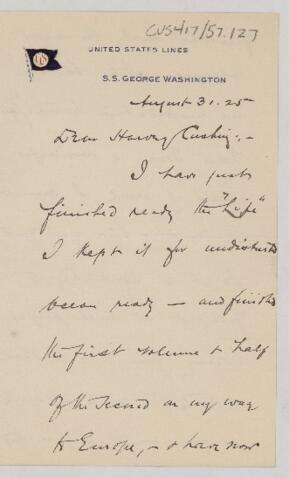 CUS417/57.127
UNITED STATES LINES
S.S. GEORGE WASHINGTON
August 31. 25
Dear Harvey Cushing:-
I have just
finished ready the "Life"
I kept it for undisturbed
ocean ready — and finished
the first volume & half
of the second on my way
to Europe, - & have now